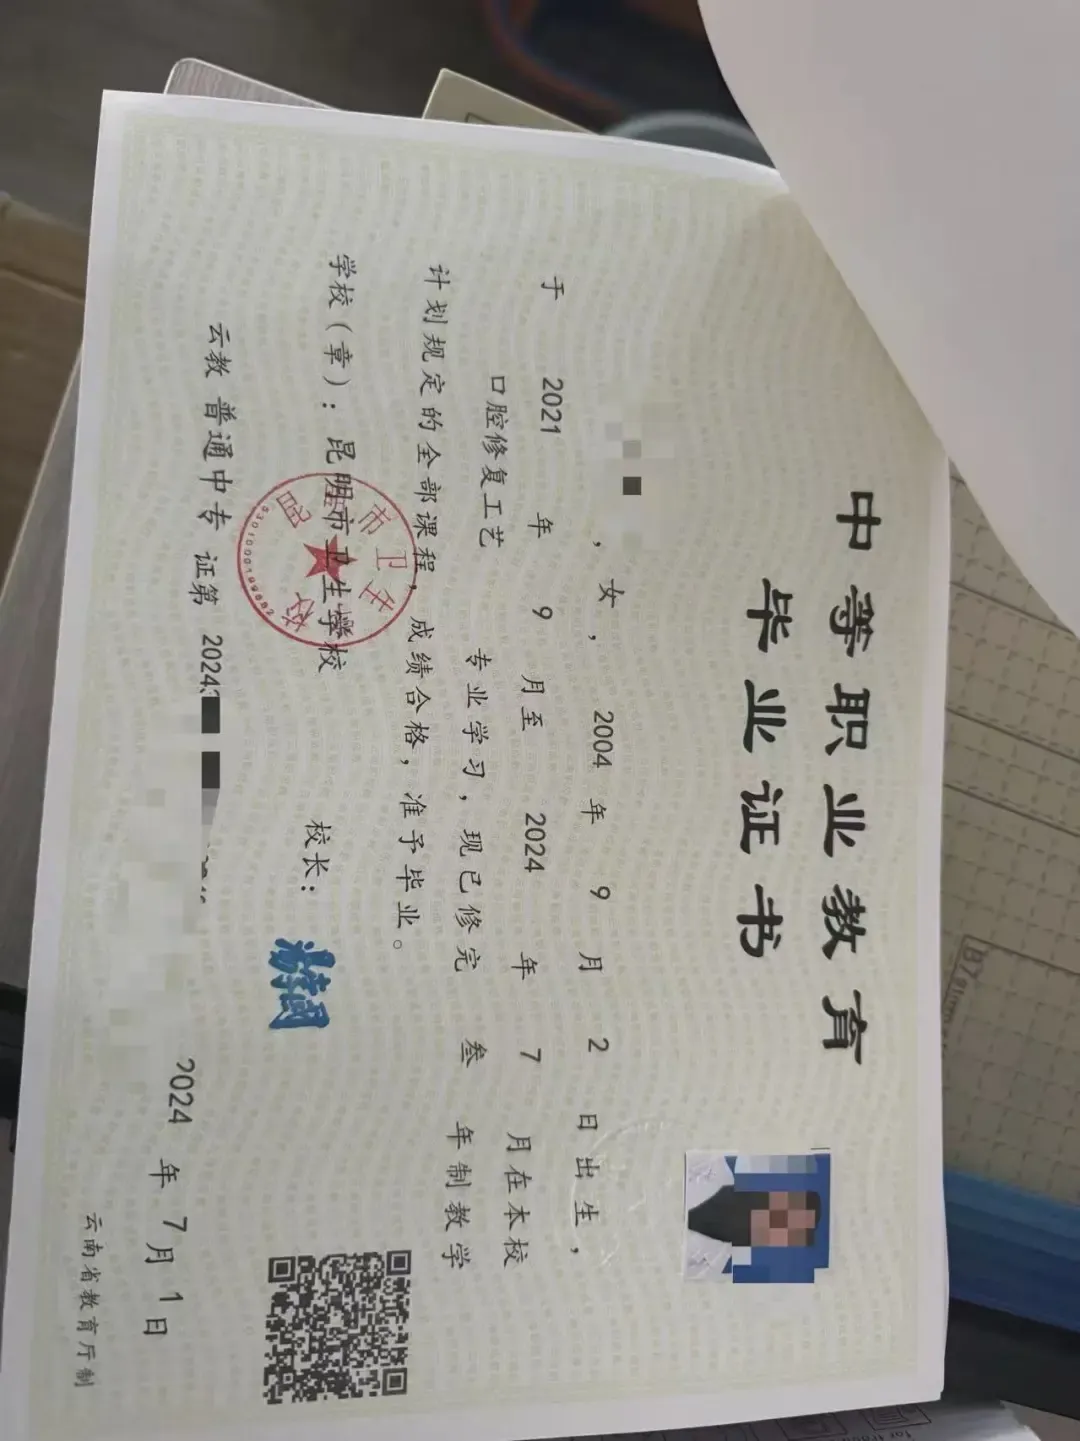 中等职业教育
毕业证书
，女，2004年9月2日出生，
于2021年9月至2024年7月在本校
口腔修复工艺专业学习，现已修完叁年制教学
计划规定的全部课程，成绩合格，准予毕业。
学校（章）：昆明市卫生学校
校长：
云教普通中专证第2024
2024年7月1日
云南省教育厅制
昆市卫生校